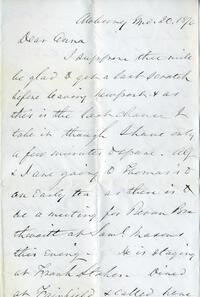 20. 18
Dear Anna
I suppose thee will
be glad to get a last scratch
before leaving Newport & as
this is the last chance I
take it though I have only
a few minutes to spare. Alf
& I are going to Thomas's to
an early tea as there is to
be a meeting for
at Saml
this evening. He is staying
at Frank
at Fairfield & called here